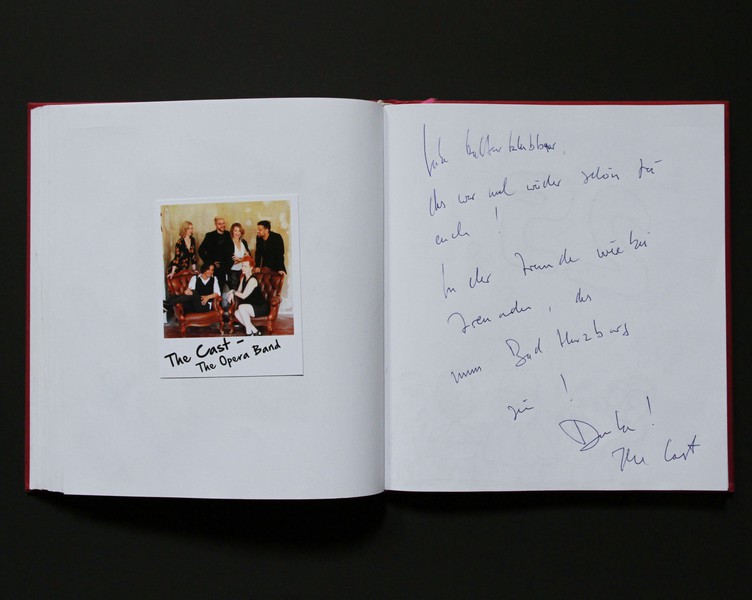 The Cast –
The Opera Band
Liebe
das war mal wieder schön bei
euch!
In der Fremde wie bei
Freunden, das
muss Bad Harzburg
sein!
Danke!
The Cast